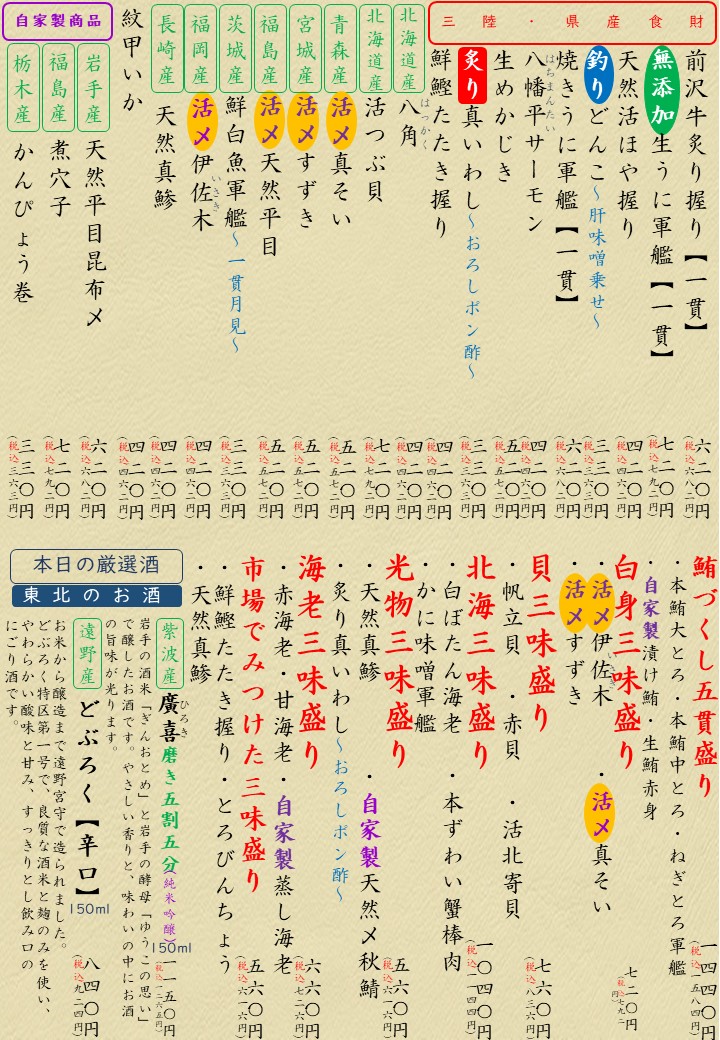 三陸・県産食財
前沢牛炙り握り【一貫】
六二〇円
(税込六八二円)
無添加生うに軍艦【一貫】
七二〇円
(税込七九二円)
天然活ほや握り
四二〇円
(税込四六二円)
釣りどんこ~肝味噌乗せ~
三三〇円
(税込三六三円)
焼きうに軍艦【一貫】
六二〇円
(税込六八二円)
はちまんたい
八幡平サーモン
四二〇円
(税込四六二円)
生めかじき
五二〇円
(税込五七二円)
炙り真いわし~おろしポン酢~
三三〇円
(税込三六三円)
鮮鰹たたき握り
四二〇円
(税込四六二円)
はっかく
北海道産 八角
四二〇円
(税込四六二円)
北海道産 活つぶ貝
七二〇円
(税込七九二円)
青森産 活〆真そい
五二〇円
(税込五七二円)
宮城産 活〆すずき
五二〇円
(税込五七二円)
福島産 活〆天然平目
五二〇円
(税込五七二円)
茨城産 鮮白魚軍艦~一貫月見~
三三〇円
(税込三六三円)
いさき
福岡産 活〆伊佐木
四二〇円
(税込四六二円)
長崎産 天然真鯵
四二〇円
(税込四六二円)
紋甲いか
四二〇円
(税込四六二円)
自家製商品
岩手産 天然平目昆布〆
六二〇円
(税込六八二円)
福島産 煮穴子
七二〇円
(税込七九二円)
栃木産 かんぴょう巻
三三〇円
(税込三六三円)
鮪づくし五貫盛り
一四四〇円
(税込一五八四円)
・本鮪大とろ・本鮪中とろ・ねぎとろ軍艦
・自家製漬け鮪・生鮪赤身
白身三味盛り
七二〇円
(税込七九二円)
いさき
・活〆伊佐木 ・活〆真そい
・活〆すずき
貝三味盛り
七六〇円
(税込八三六円)
・帆立貝 ・赤貝 ・活北寄貝
北海三味盛り
一〇四〇円
(税込一一四四円)
・白ぼたん海老 ・本ずわい蟹棒肉
・かに味噌軍艦
光物三味盛り
五六〇円
(税込六一六円)
・天然真鯵 ・自家製天然〆秋鯖
・炙り真いわし~おろしポン酢~
海老三味盛り
六六〇円
(税込七二六円)
・赤海老・甘海老・自家製蒸し海老
市場でみつけた三味盛り
五六〇円
(税込六一六円)
・鮮鰹たたき握り・とろびんちょう
・天然真鯵
本日の厳選酒
東北のお酒
ひろき
紫波産 廣喜 磨き五割五分(純米吟醸)150ml
一一五〇円
(税込一二六五円)
岩手の酒米「ぎんおとめ」と岩手の酵母「ゆうこの思い」
で醸したお酒です。やさしい香りと、味わいの中にお酒
の旨味が光ります。
遠野産 どぶろく【辛口】150ml
八四〇円
(税込九二四円)
お米から醸造まで遠野宮守で造られました。
どぶろく特区第一号で、良質な酒米と麹のみを使い、
やわらかい酸味と甘み、すっきりとし飲み口の
にごり酒です。